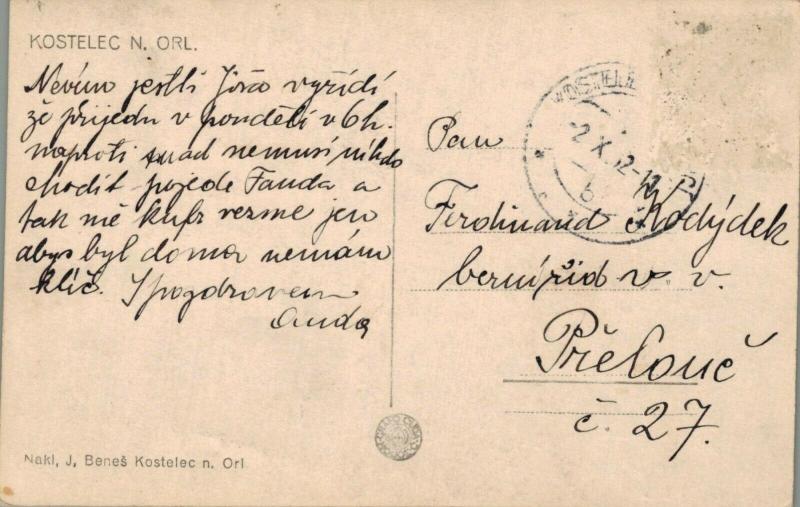 KOSTELEC N. ORL.
Nevím jestli Jóža vyřídí
že přijedu v pondělí v 6 h.
naproti snad nemusí nikdo
chodit pojede Fanda a
tak mě kufr vezme jen
abys byl doma nemám
klíč. S pozdravem
Anda
Nakl, J, Beneš Kostelec n. Orl
2 X. 12-12
Pan
Ferdinand Kodýdek
berní říd v. v.
Přelouč
č. 27.